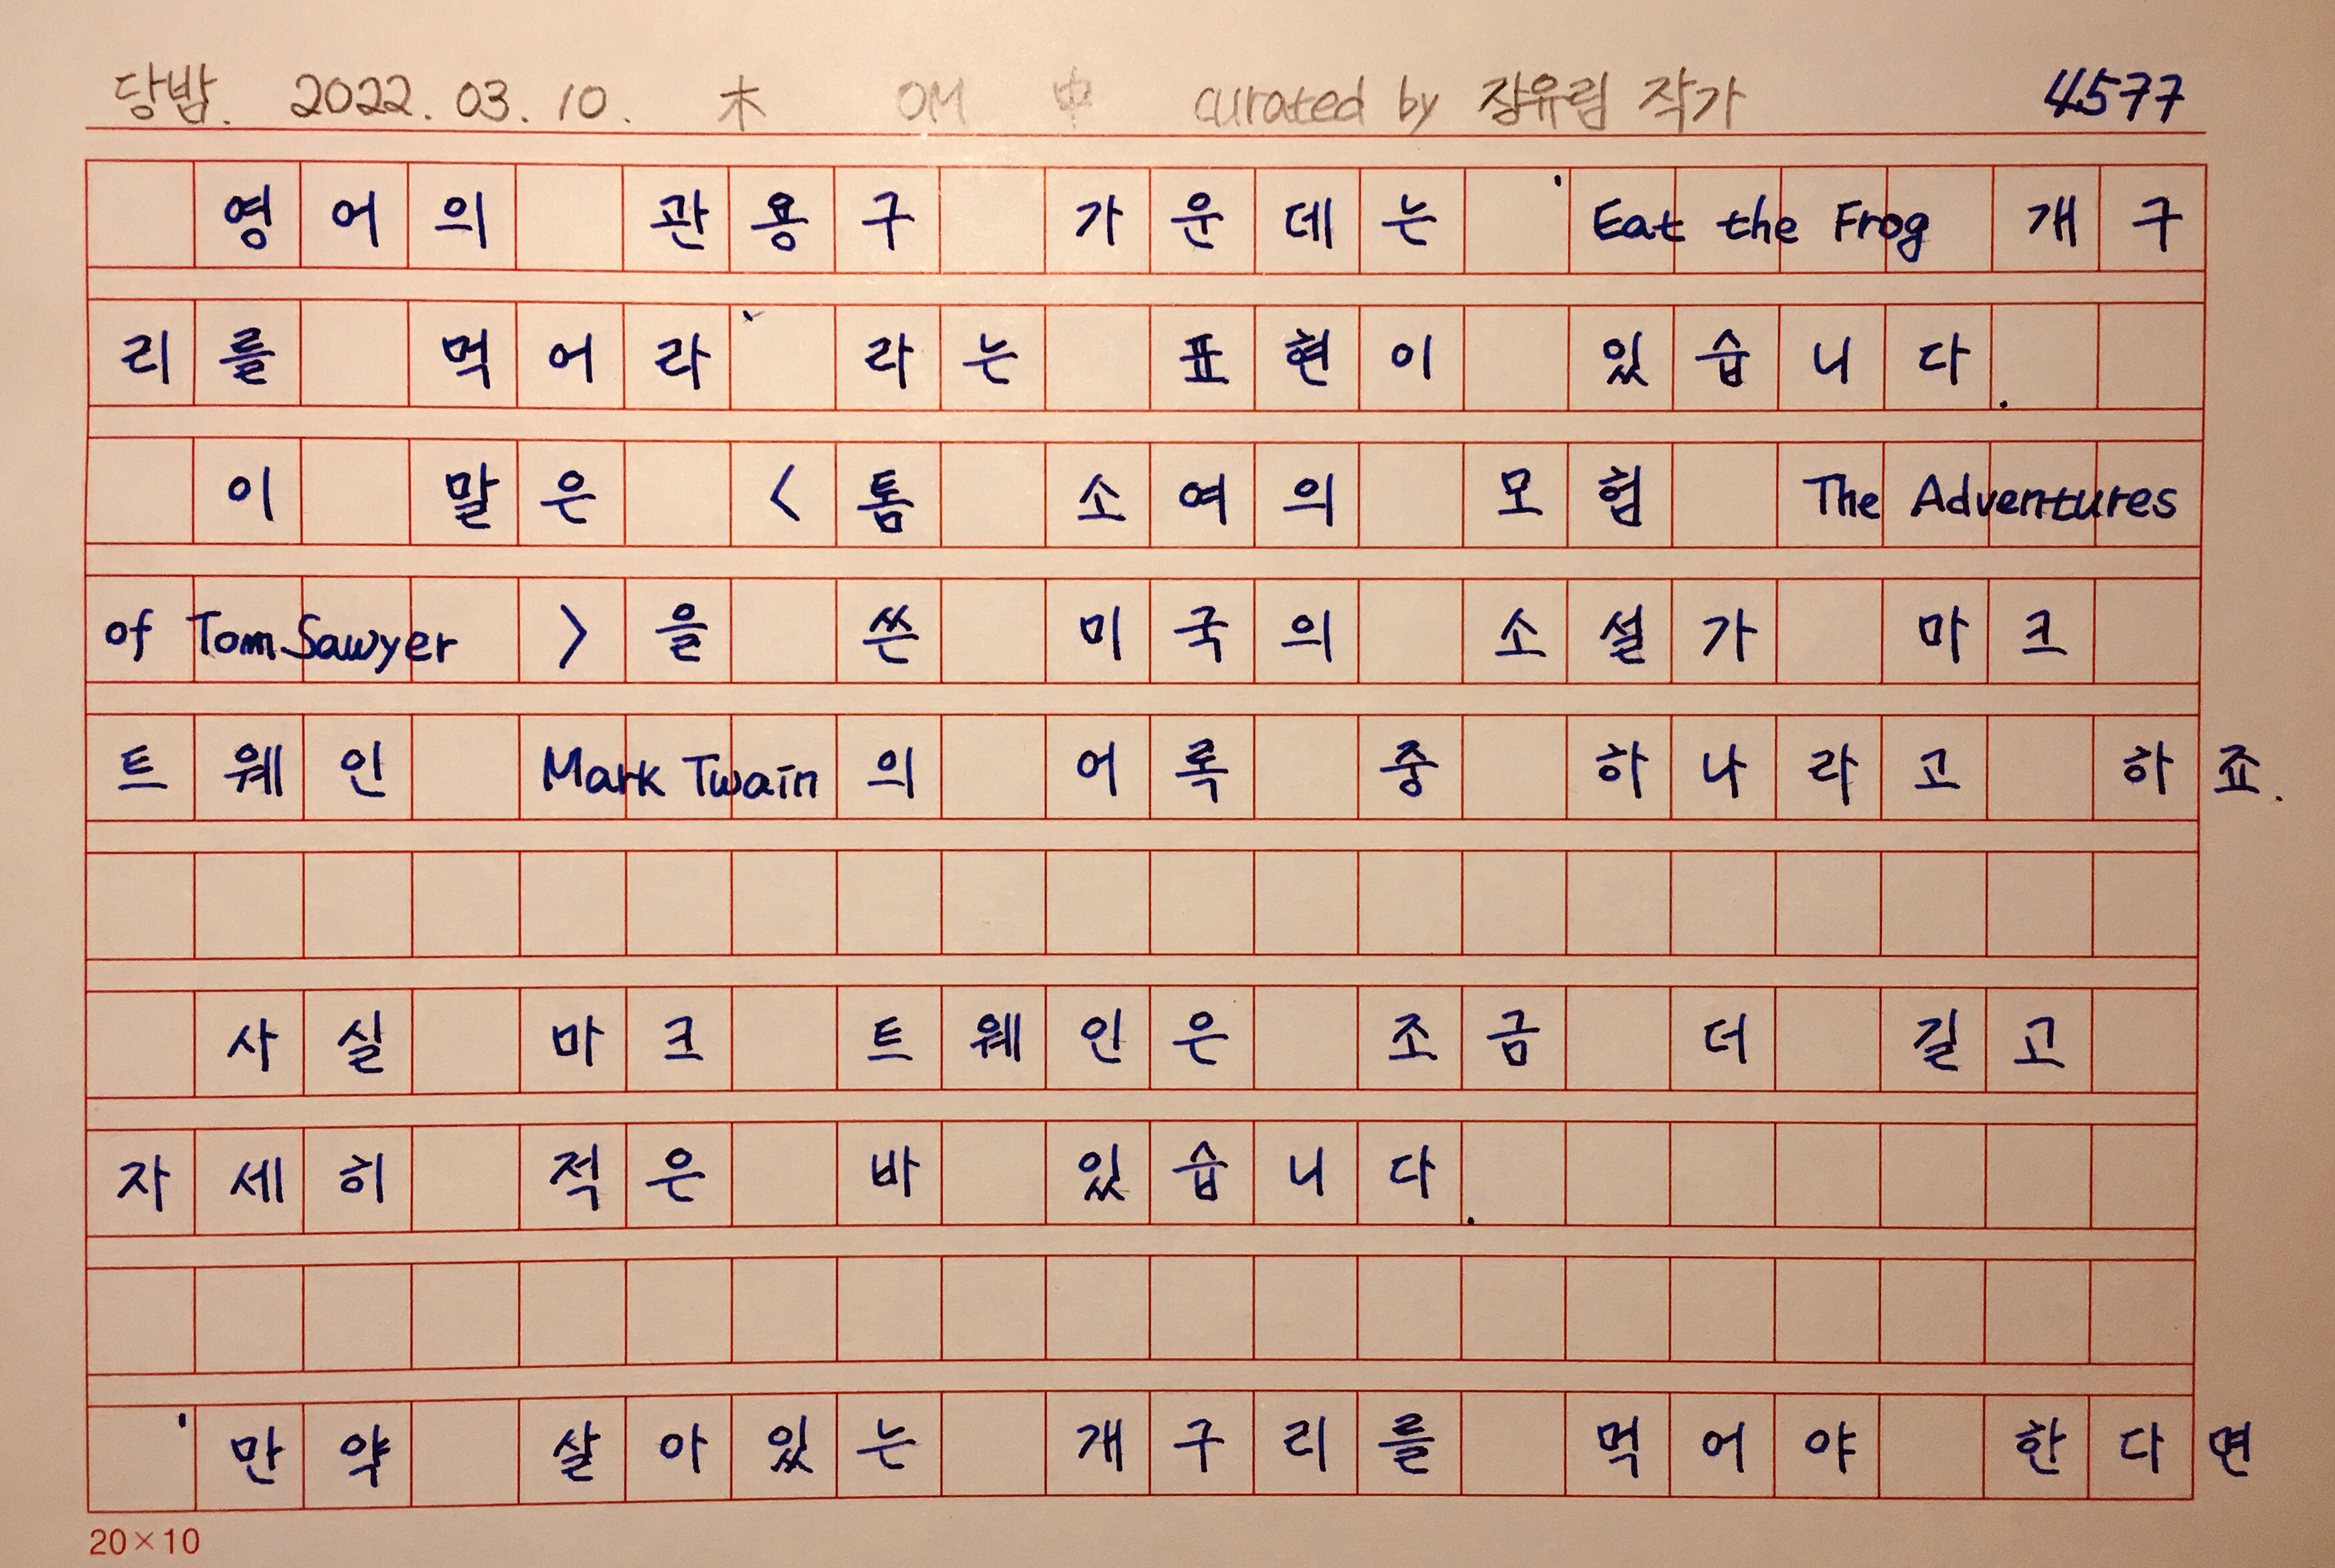 당밤. 2022.03.10. 木 OM 中 curated by 장유림 작가 4577
영어의 관용구 가운데는 'Eat the Frog 개구
리를 먹어라' 라는 표현이 있습니다.
이 말은 <톰 소여의 모험 The Adventures
of Tom Sawyer >을 쓴 미국의 소설가 마크
트웨인 Mark Twain의 어록 중 하나라고 하죠.
사실 마크 트웨인은 조금 더 길고
자세히 적은 바 있습니다.
'만약 살아있는 개구리를 먹어야 한다면
20×10